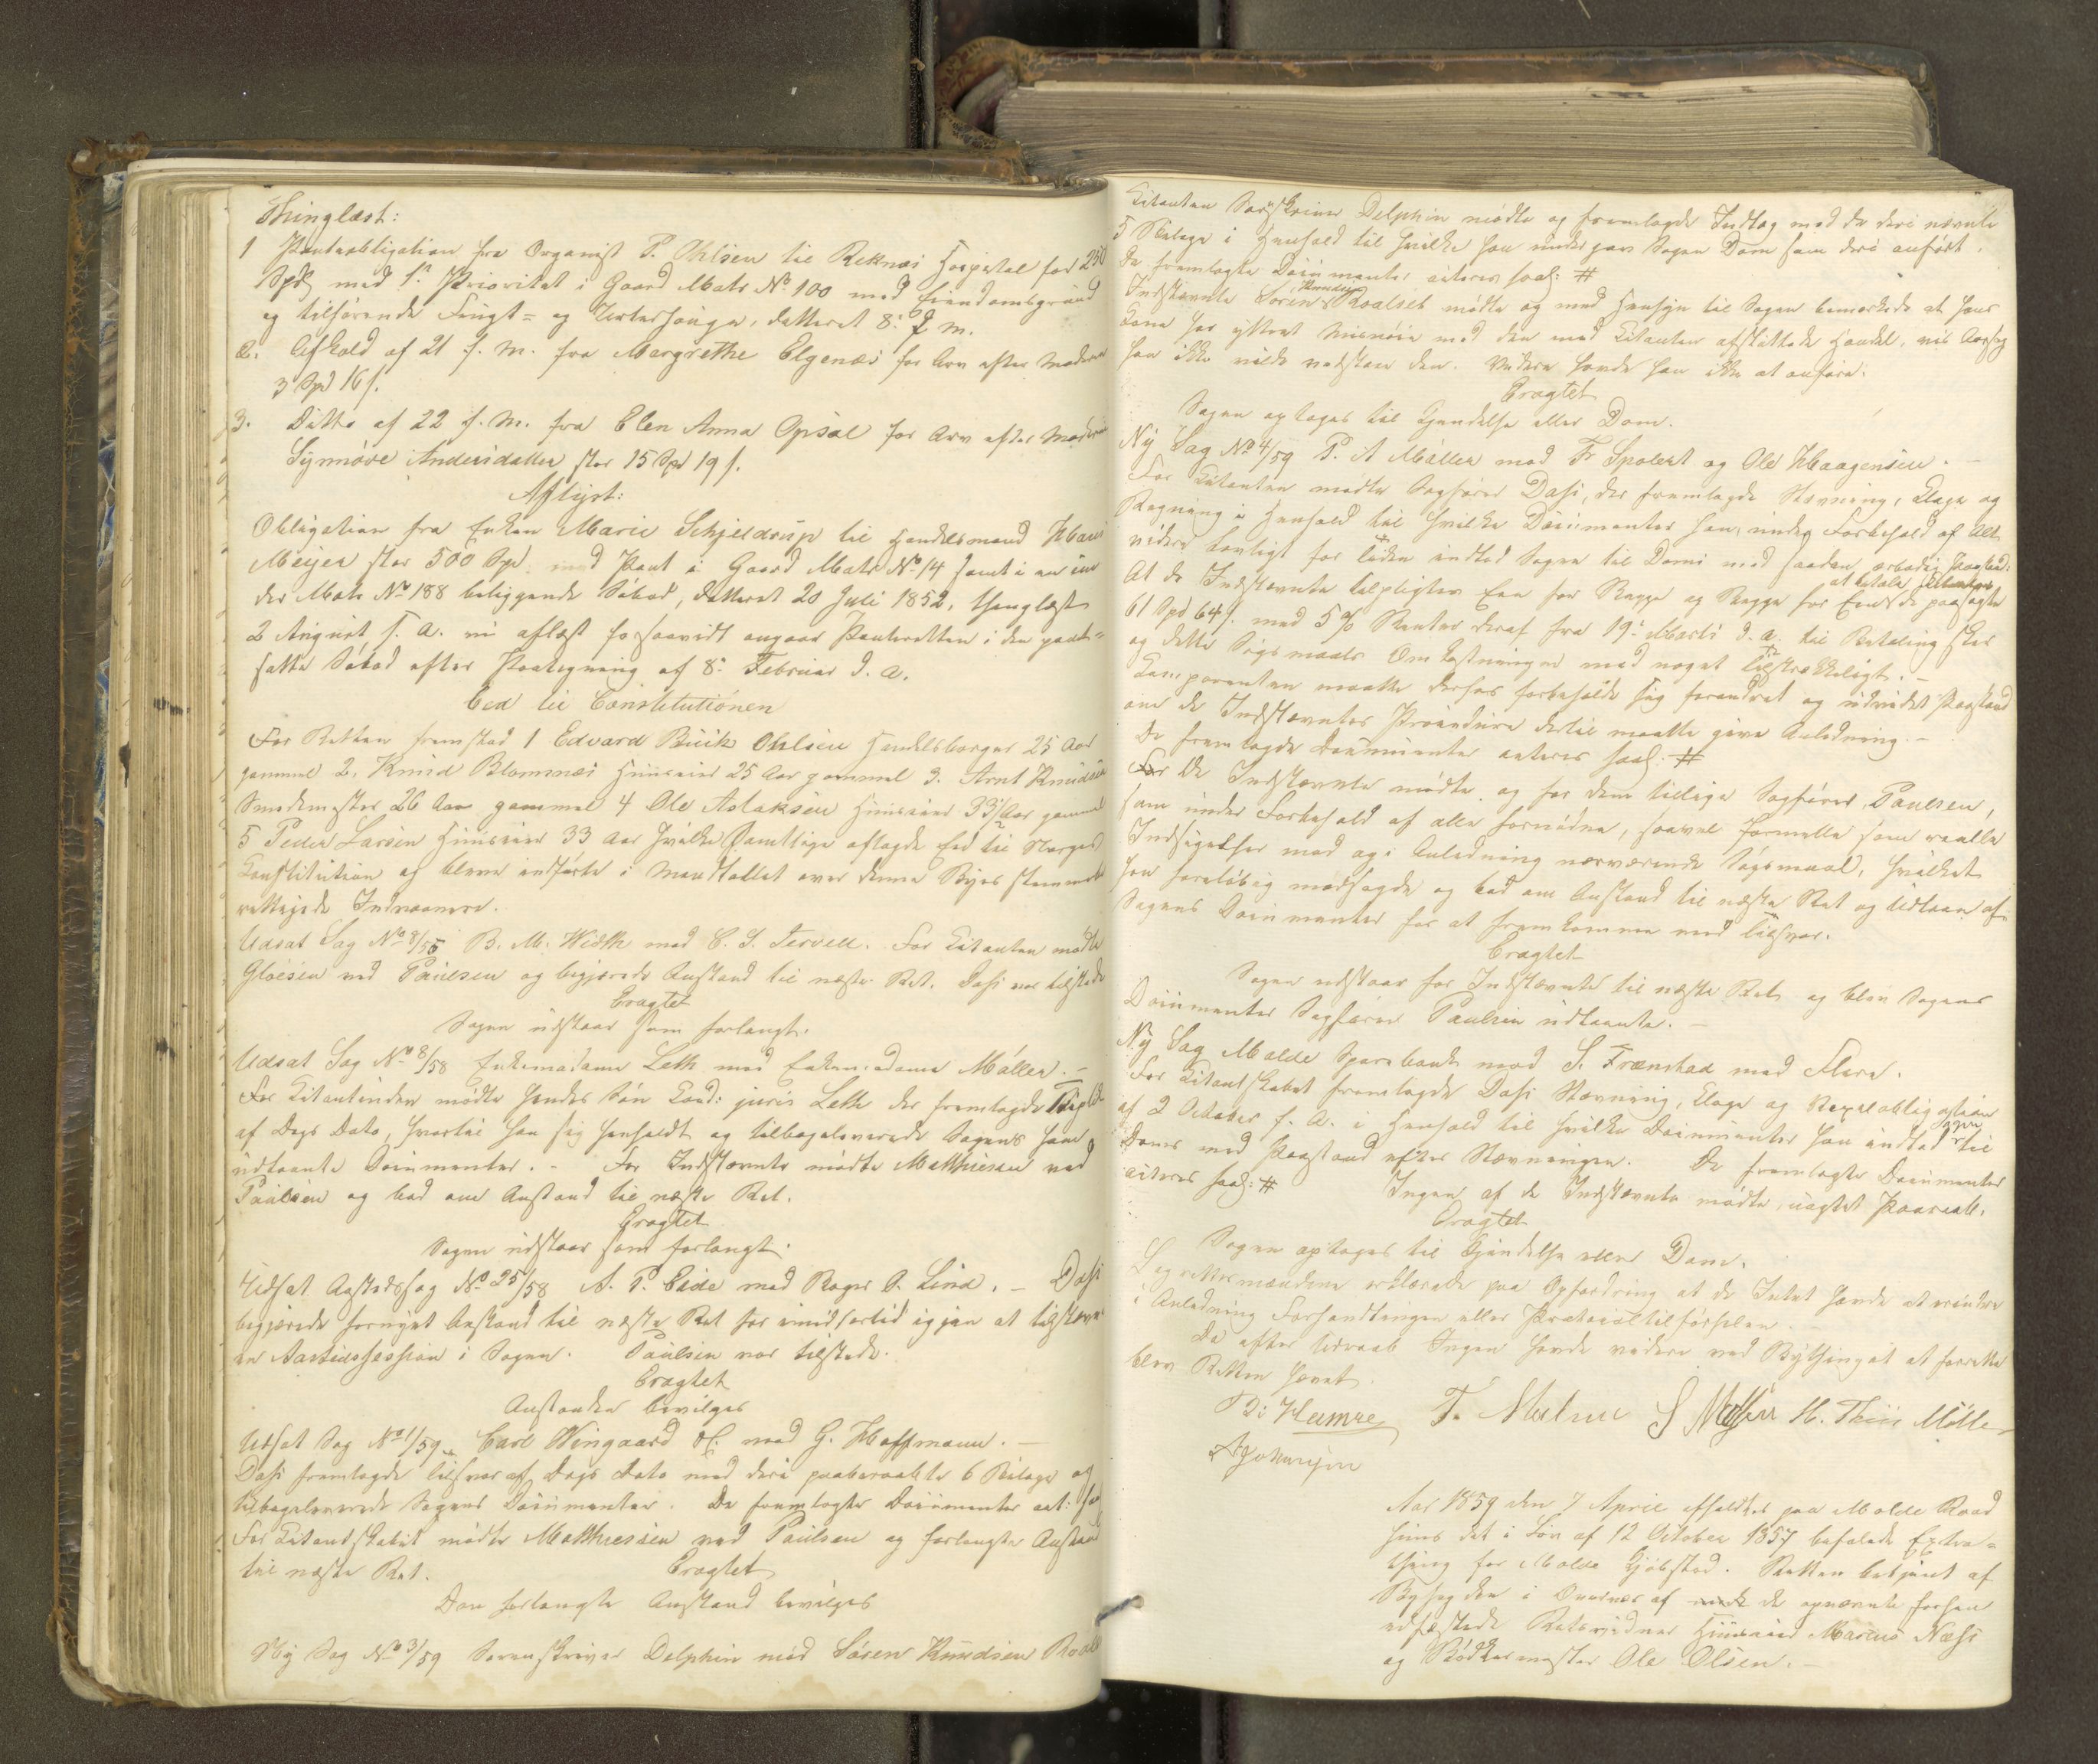 Thinglæst:
1 Panteobligation fra Organist P. Ohlsen til Reknæs Hospital for 250
Spd med 1ste Prioritet i Gaard Matr No 100 med Eiendomsgrund
og tilhørende Huugst= og Urtehauger, datteret 8de d. M.
2. Afkald af 21 f. M. fra Margrethe Elgenæs for Arv efter Moderen
3 Spd 16 s.
3. Ditto af 22 f. M. fra Elen Anna Opsal for Arv efter Moderen
Synnøve Andersdatter stor 15 Spd 19 s.
Aflyst:
Obligation fra Enken Marie Schjeldrup til Handelsmand Hans
Meijer stor 500 Spd med Pant i Gaard Matr No 14 samt i en un-
der Matr No 188 beliggende Søbod, datteret 20 Juli 1852, thinglæst
2 August s. A. nu aflæst forsaavidt angaar Panteretten i den pant=
satte Søbod efter Paategning af 8de Februar d. A.
Eed til Constitutionen
For Retten fremstod 1 Edvard Buck Ohlsen Handelsborger 25 Aar
gammel 2. Knud Blomnæs Huuseier 25 Aar gammel 3. Arnt Knudsen
Smedemester 26 Aar gammel 4 Ole Aslaksen Huuseier 33 Aar gammel
5 Peder Larsen Huuseier 33 Aar hvilke Samtlige aflagde Eed til Norges
Constitution og bleve indførte i Mandtallet over denne Byes stemme
rettigede Indvaanere.
Udsat Sag No 8/55 B. M. Width mod C. J. Tervell. For Citanten mødte
Gløersen ved Paulsen og begjærede Anstand til næste Ret. Dahl var tilstede
Eragtet
Sagen udstaar som forlangt.
Udsat Sag No 8/58 Enkemadame Leth mod Enkemadame Møller. –
For Citantinden mødte hendes Søn Cand: juris Leth der fremlagde
af Dags Dato, hvortil han sig henholdt og tilbageleverede Sagens ham
udlaante Documenter. – For Indstævnte mødte Matthiesen ved
Paulsen og bad om Anstand til næste Ret.
Eragtet
Sagen udstaar som forlangt.
Udsat Aastedssag No 25/58 A. P. Eide mod Roger O. Lind. – Dahl
begjærede fornyet Anstand til næste Ret for imidlertid igjen at tilstævne
en Aastedssession i Sagen. Paulsen var tilstede.
Eragtet
Anstanden bevilges
Udsat Sag No 1/59 Carl Wingaard &c: mod G. Hoffmann. –
Dahl fremlagde Tilsvar af Dags Dato med deri paaberaabte 6 Bilage og
tilbageleverede Sagens Documenter. De fremlagte Documenter act: saal
For Citantskabet mødte Matthiessen ved Paulsen og forlangte Anstand
til næste Ret. Eragtet
Den forlangte Anstand bevilges
Ny Sag No 3/59 Sorenskriver Delphin mod Søren Knudsen Roals
Citanten Sorenskriver Delphin mødte og fremlagde Indlæg med de deri nævnte
5 Bilage i Henhold til hvilke han undergav Sagen Dom som deri anført.
De fremlagte Documenter acteres saal: #
Indstævnte Søren Knudsen Roalset mødte og med Hensyn til Sagen bemærkede at hans
Kone har yttret Misnøie med den med Citanten afsluttede Handel, vis
han ikke vilde vedstaae den. Videre havde han ikke at anføre.
Eragtet
Sagen optages til Kjendelse eller Dom.
Ny Sag No 4/59 P. A Møller mod Fr Spolert og Ole Haagensen. –
For Citanten mødte Sagfører Dahl, der fremlagde Stævning, Klage og
Regning i Henhold til hvilke Documenter han, under Forbehold af Alt
videre tarvligt for Tiden indlod Sagen til Doms med saadan ærbødig Paastand:
At de Indstævnte tilpligtes Een for Begge og Begge for Een at betale de paasagte
61 Spd 64 s. med 5 % Renter deraf fra 19de Marts d. A. til Betaling skeer
og dette Søgsmaals Omkostninger med noget tilstrækkeligt. –
Comparenten maatte derhos forbeholde sig forandret og udvidet Paastand
om de Indstævntes Procedure dertil maatte give Anledning. –
De fremlagde Documenter acteres saal: #
For De Indstævnte mødte og for dem tillige Sagfører Paulsen,
som under Forbehold af alle fornødne, saavel formelle som reelle
Indsigelser mod og i Anledning nærværende Søgsmaal, hvilket
han foreløbig modsagde og bad om Anstand til næste Ret og Udlaan af
Sagens Documenter for at fremkomme med Tilsvar.
Eragtet
Sagen udstaar for Indstævnte til næste Ret og blev Sagens
Documenter Sagfører Paulsen udlaante. –
Ny Sag Molde Sparebank mod S. Frænstad med Flere.
For Citantskabet fremlagde Dahl Stævning, Klage og Vexelobligation
af 2 October f. A. i Henhold til hvilke Documenter han indlod Sagen til
Doms med Paastand efter Stævningen. De fremlagte Documenter
acteres saal: # Ingen af de Indstævnte mødte, uagtet Paaraab.
Eragtet
Sagen optages til Kjendelse eller Dom.
Lagrettesmændene erklærede paa Opfordring at de Intet havde at erindre
i Anledning Forhandlingen eller Protocoltilførselen. –
Da efter Udraab Ingen havde videre ved Bythinget at forrette
blev Retten hævet.
D: Heimre F. Malme S Møller H. Thiis Møller
A Johansen
Aar 1859 den 7 April afholdtes paa Molde Raad
huus det i Lov af 12 October 1857 befalede Extra=
thing for Molde Kjøbstad. Retten betjent af
Byfogden i Overvær af de opnævnte forhen
edfæstede Retsvidner Huuseier Marcus Næss
og Bødkermester Ole Olsen. –